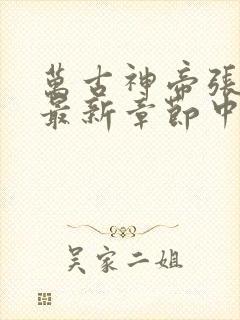 萬古神帝張
最新章節中
吴家二姐